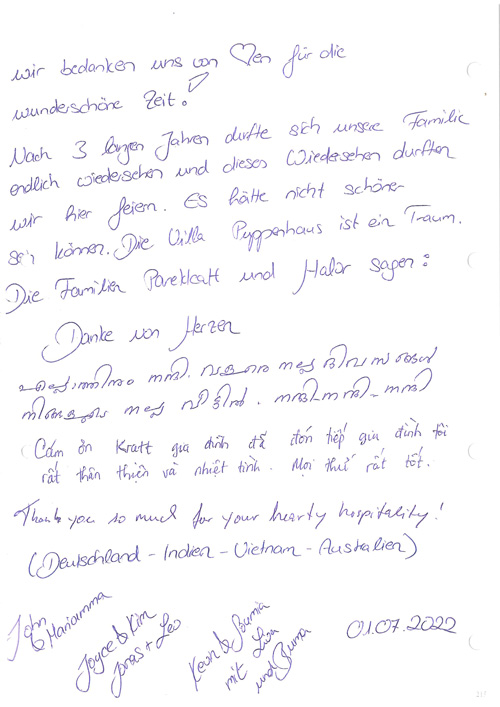 wir bedanken uns von ♡en für die
wunderschöne Zeit!
Nach 3 langen Jahren durfte sich unsere Familie
endlich wiedersehen und dieses Wiedersehen durften
wir hier feiern. Es hätte nicht schöner
sein können. Die Villa Puppenhaus ist ein Traum.
Die Familien Parekkatt und Halar sagen:
Danke von Herzen
നന്ദി. വളരെ നല്ല ദിവസങ്ങൾ
നിങ്ങളുടെ നല്ല വീട്ടിൽ. നന്ദി-നന്ദി-നന്ദി
Cám ơn Kratt gia đình đã đón tiếp gia đình tôi
rất thân thiện và nhiệt tình. Mọi thứ rất tốt.
Thank you so much for your hearty hospitality!
(Deutschland - Indien - Vietnam - Australien)
John
& Mariamma
Joyce & Kim
Jonas + Leo
Kevin &
mit
und
01.07.2022